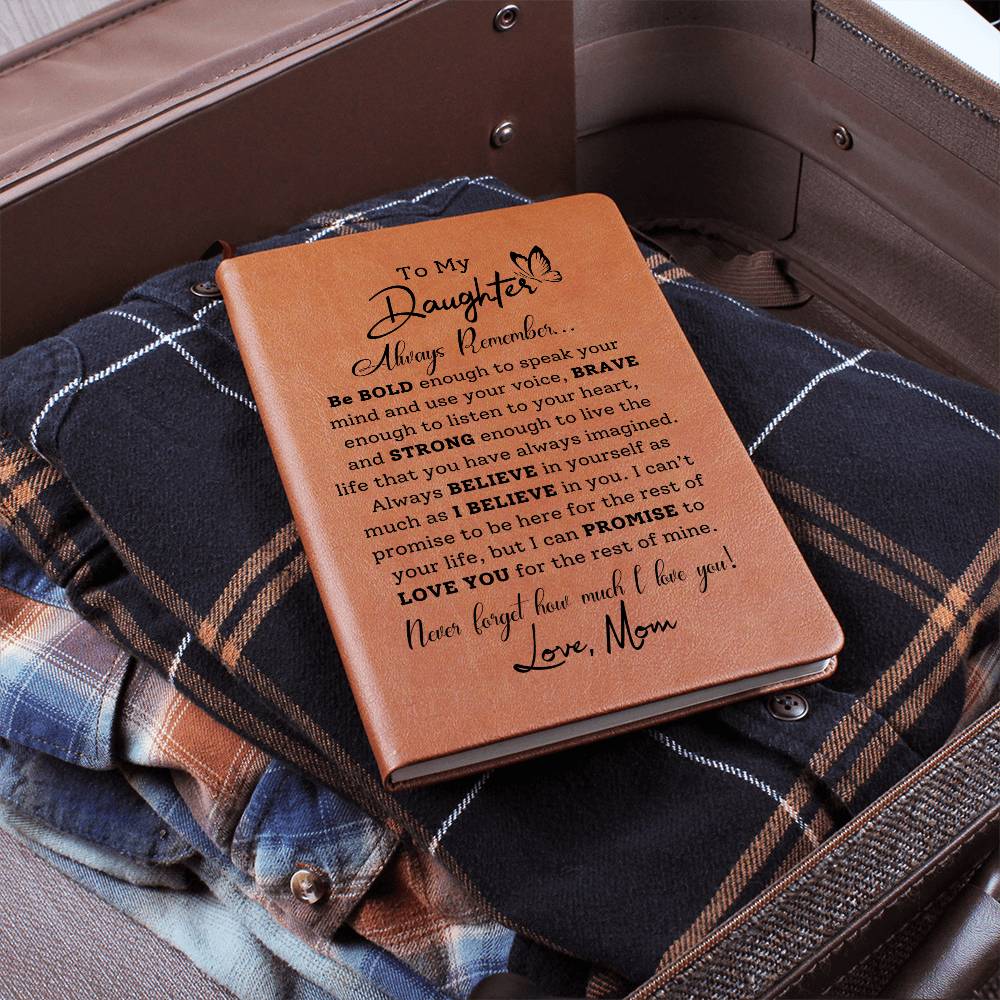 To My
Daughter
Always Remember...
Be BOLD enough to speak your
mind and use your voice, BRAVE
enough to listen to your heart,
and STRONG enough to live the
life that you have always imagined.
Always BELIEVE in yourself as
much as I BELIEVE in you. I can't
promise to be here for the rest of
your life, but I can PROMISE to
LOVE YOU for the rest of mine.
Never forget how much I love you!
Love, Mom